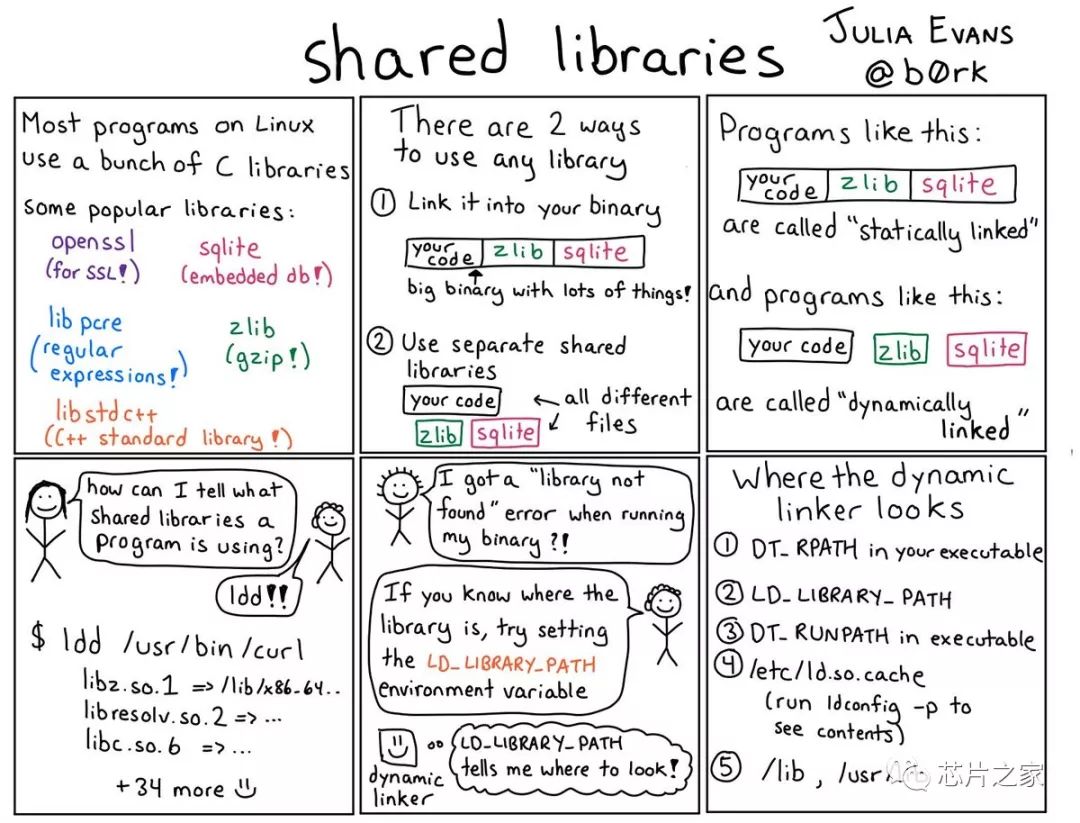 shared libraries
JULIA EVANS
@b0rk
Most programs on Linux
use a bunch of C libraries
some popular libraries:
openssl
(for SSL!)
sqlite
(embedded db!)
lib pcre
(regular
expressions!)
zlib
(gzip!)
libstdc++
(C++ standard library!)
There are 2 ways
to use any library
① Link it into your binary
your code zlib sqlite
big binary with lots of things!
② Use separate shared
libraries
your code
← all different
files
zlib sqlite
Programs like this:
your code zlib sqlite
are called "statically linked"
and programs like this:
your code zlib sqlite
are called "dynamically
linked"
how can I tell what
shared libraries a
program is using?
ldd!!
$ ldd /usr/bin/curl
libz.so.1 => /lib/x86-64..
libresolv.so.2 => ...
libc.so.6 => ...
+34 more
I got a "library not
found" error when running
my binary?!
If you know where the
library is, try setting
the LD_LIBRARY_PATH
environment variable
LD_LIBRARY_PATH
tells me where to look!
dynamic
linker
Where the dynamic
linker looks
① DT_RPATH in your executable
② LD_LIBRARY_PATH
③ DT_RUNPATH in executable
④ /etc/ld.so.cache
(run ldconfig -p to
see contents)
⑤ /lib, /usr/
芯片之家